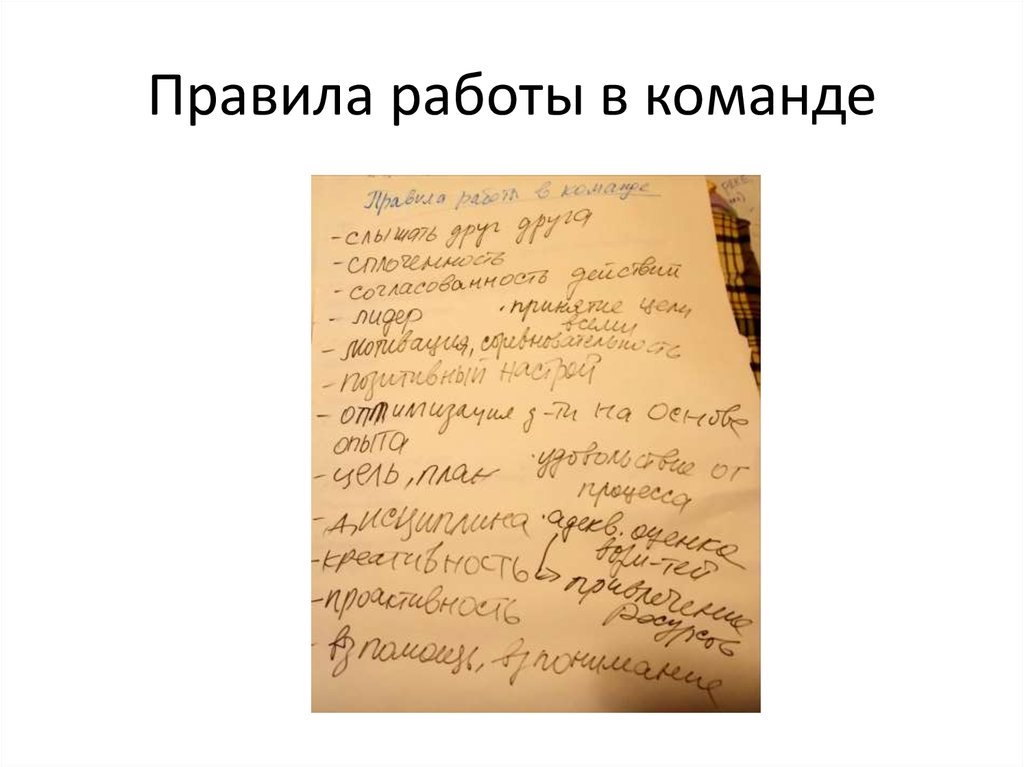 Правила работы в команде
Правила работы в команде
- слышать друг друга
- сплоченность
- согласованность действий
- лидер
· принятие цели
всеми
- мотивация, соревновательность
- позитивный настрой
- оптимизация д-ти на основе
опыта
- цель, план
· удовольствие от
процесса
- дисциплина
· адекв. оценка
возм-тей
- креативность
→ привлечение
ресурсов
- проактивность
- вз помощь, вз понимание